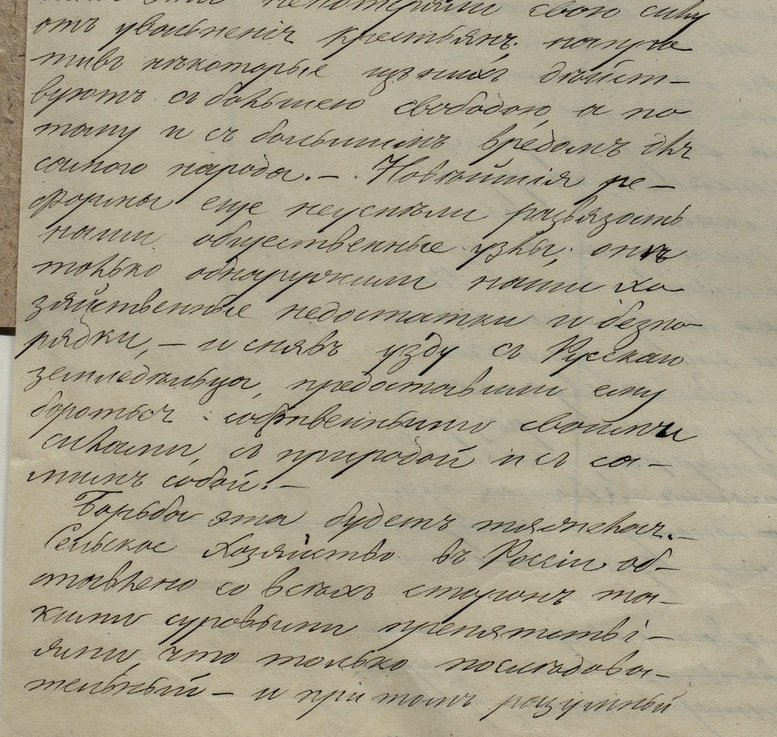 непотеряли свою силу
отъ увольненія крестьянъ; напро
тивъ нѣкоторые изъ нихъ дѣйст-
вуютъ съ большею свободою, а по
тому и съ большимъ вредомъ для
самого народа. - Новѣйшія ре-
формы еще неуспѣли развязать
наши общественные узлы; онѣ
только обнаружили наши хо
зяйственные недостатки и безпо
рядки, - и снявъ узду съ Русскаго
земледѣльца, предоставили ему
бороться собственными своими
силами, съ природой и съ са-
мимъ собой. -
Борьба эта будетъ тяжелая. -
Сельское хозяйство въ Россіи об-
ставлено со всѣхъ сторонъ та-
кими суровыми препятстві-
ями, что только послѣдова-
тельный - и при томъ разумный